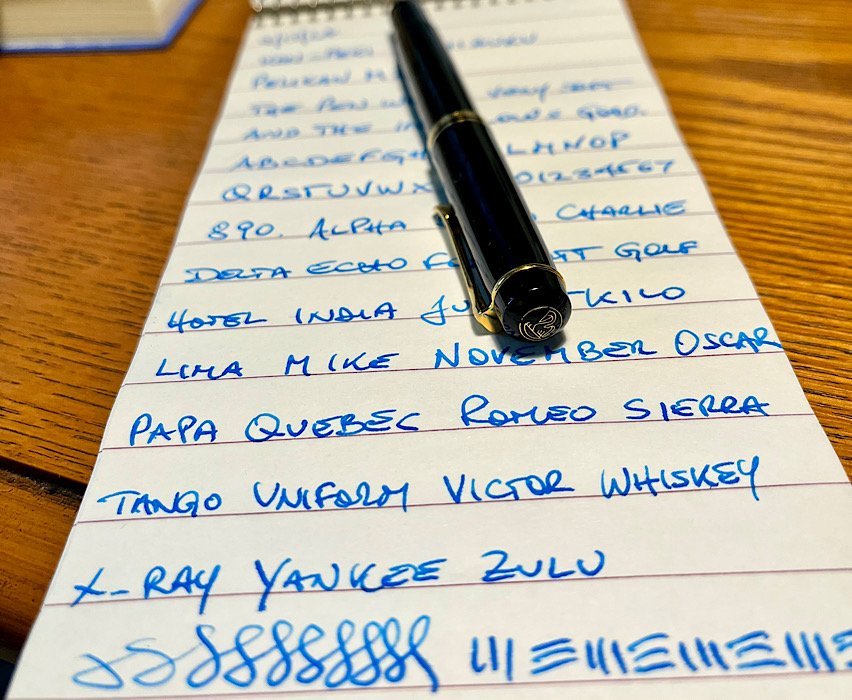 PELIKAN M
THE PEN VERY
AND THE GOOD.
ABCDEFGH LMNOP
QRSTUVWX 01234567
890. ALPHA CHARLIE
DELTA ECHO FO GOLF
HOTEL INDIA JU T KILO
LIMA MIKE NOVEMBER OSCAR
PAPA QUEBEC ROMEO SIERRA
TANGO UNIFORM VICTOR WHISKEY
X-RAY YANKEE ZULU